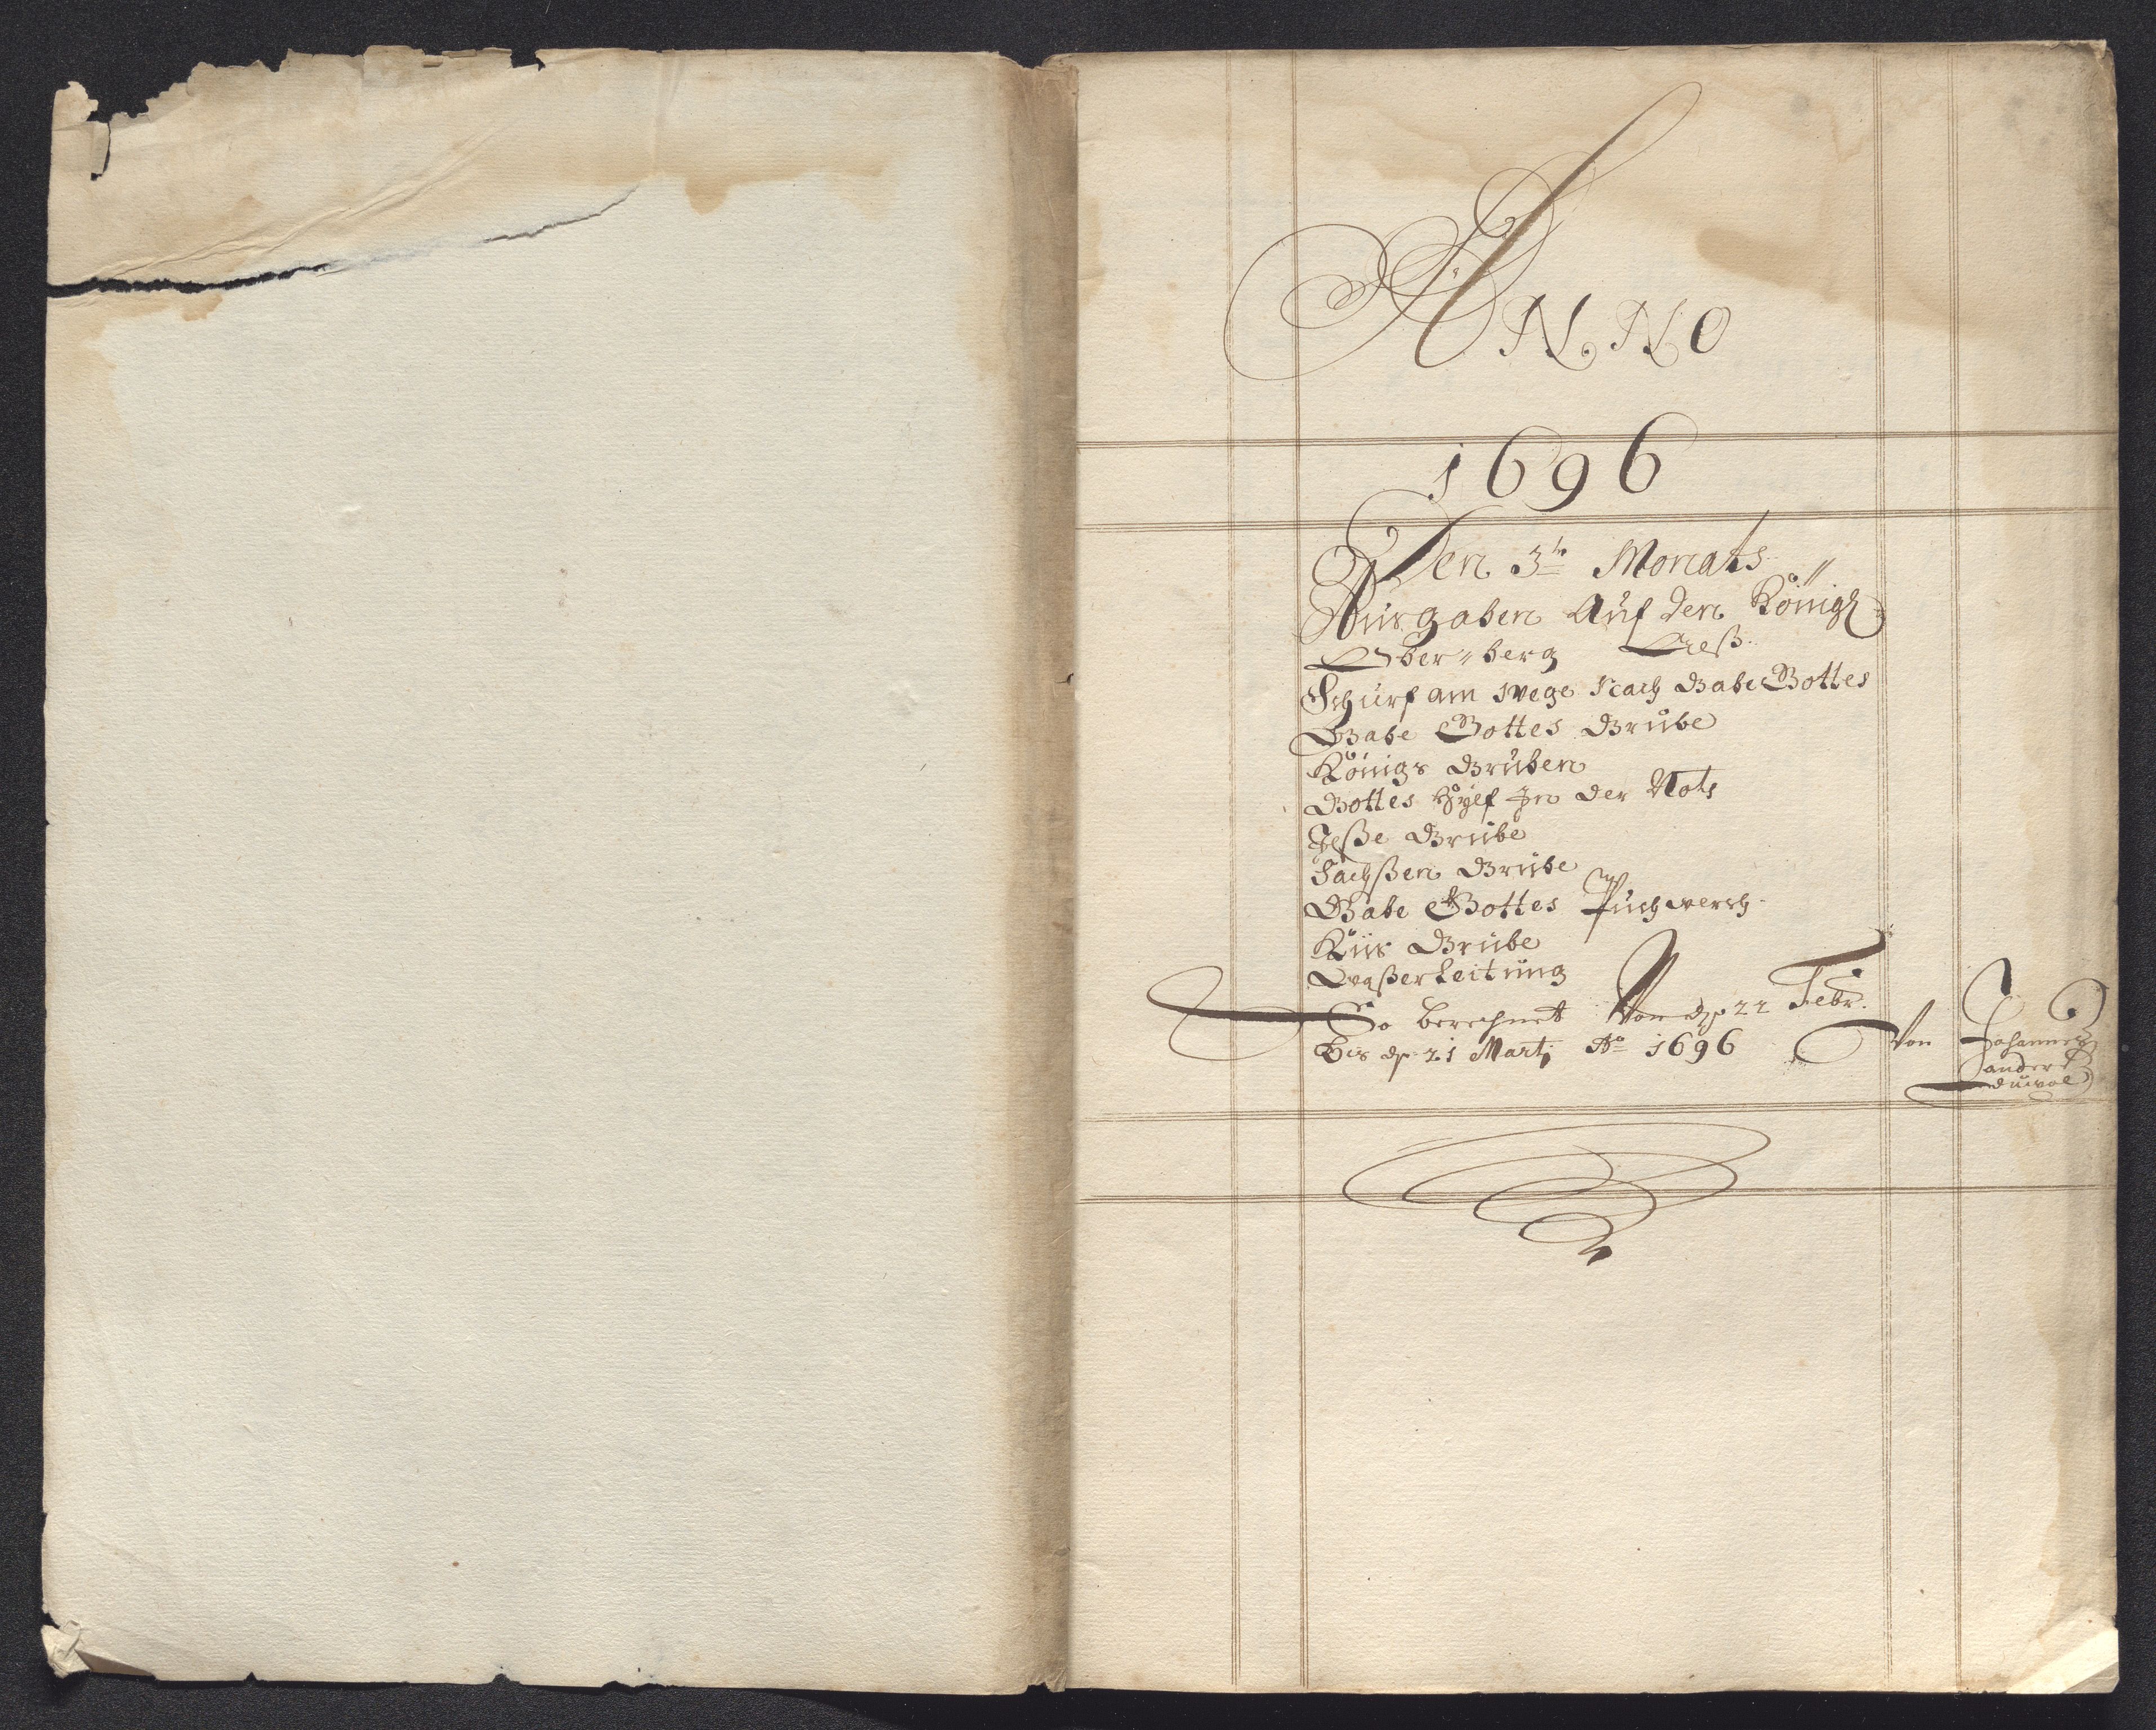 ANNO
1696
Den 3te Monats
Ausgaben Auf den Königl
Ober-berg
Schurf am wege Nach Gabe Gottes
Gabe Gottes Grube
Königs Gruben
Gottes Hylf In der Noht
Jeße Grube
Sachßen Grube
Gabe Gottes Puchwerch
Küs Grube
Waßerleitung
So berechnet Von dh 22 Febr.
bis dh 21 Martj Ao 1696 Von Johannes
ander